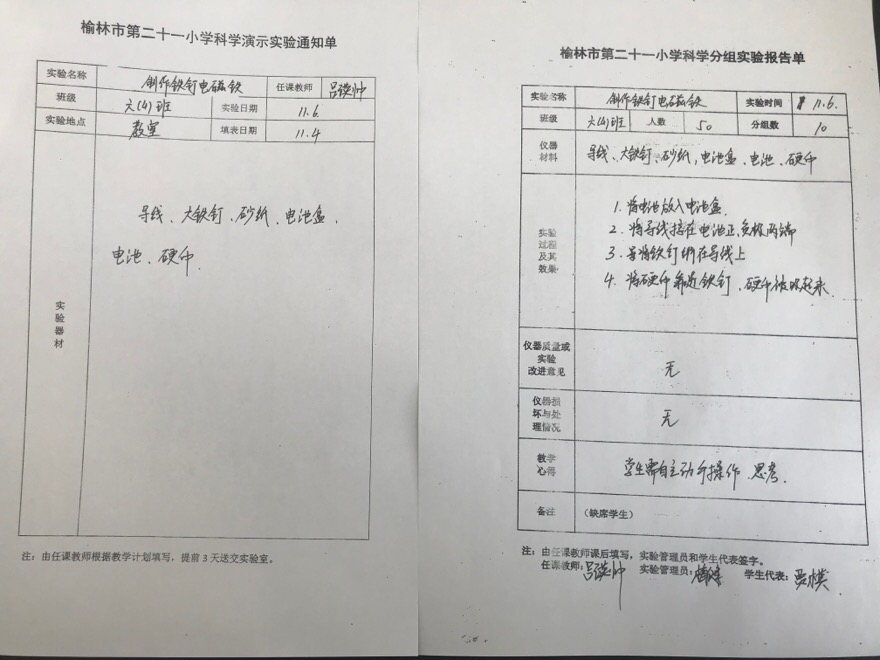 榆林市第二十一小学科学演示实验通知单
实验名称 制作铁钉电磁铁 任课教师
班级 六(4)班 实验日期 11.6.
实验地点 教室 填表日期 11.4
实验器材
导线、大铁钉、砂纸、电池盒、
电池、硬币.
注：由任课教师根据教学计划填写，提前3天送交实验室。
榆林市第二十一小学科学分组实验报告单
实验名称 制作铁钉电磁铁 实验时间 11.6.
班级 六(4)班 人数 50 分组数 10
仪器材料 导线、大铁钉、砂纸，电池盒、电池、硬币
实验过程及其效果
1.将电池放入电池盒.
2.将导线搭在电池正、负极两端
3.将铁钉绑在导线上
4.将硬币靠近铁钉、硬币被吸起来.
仪器质量或实验改进意见 无
仪器损坏与处理情况 无
教学心得 学生需自主动手操作、思考.
备注 （缺席学生）
注：由任课教师课后填写，实验管理员和学生代表签字。
任课教师： 实验管理员： 学生代表：